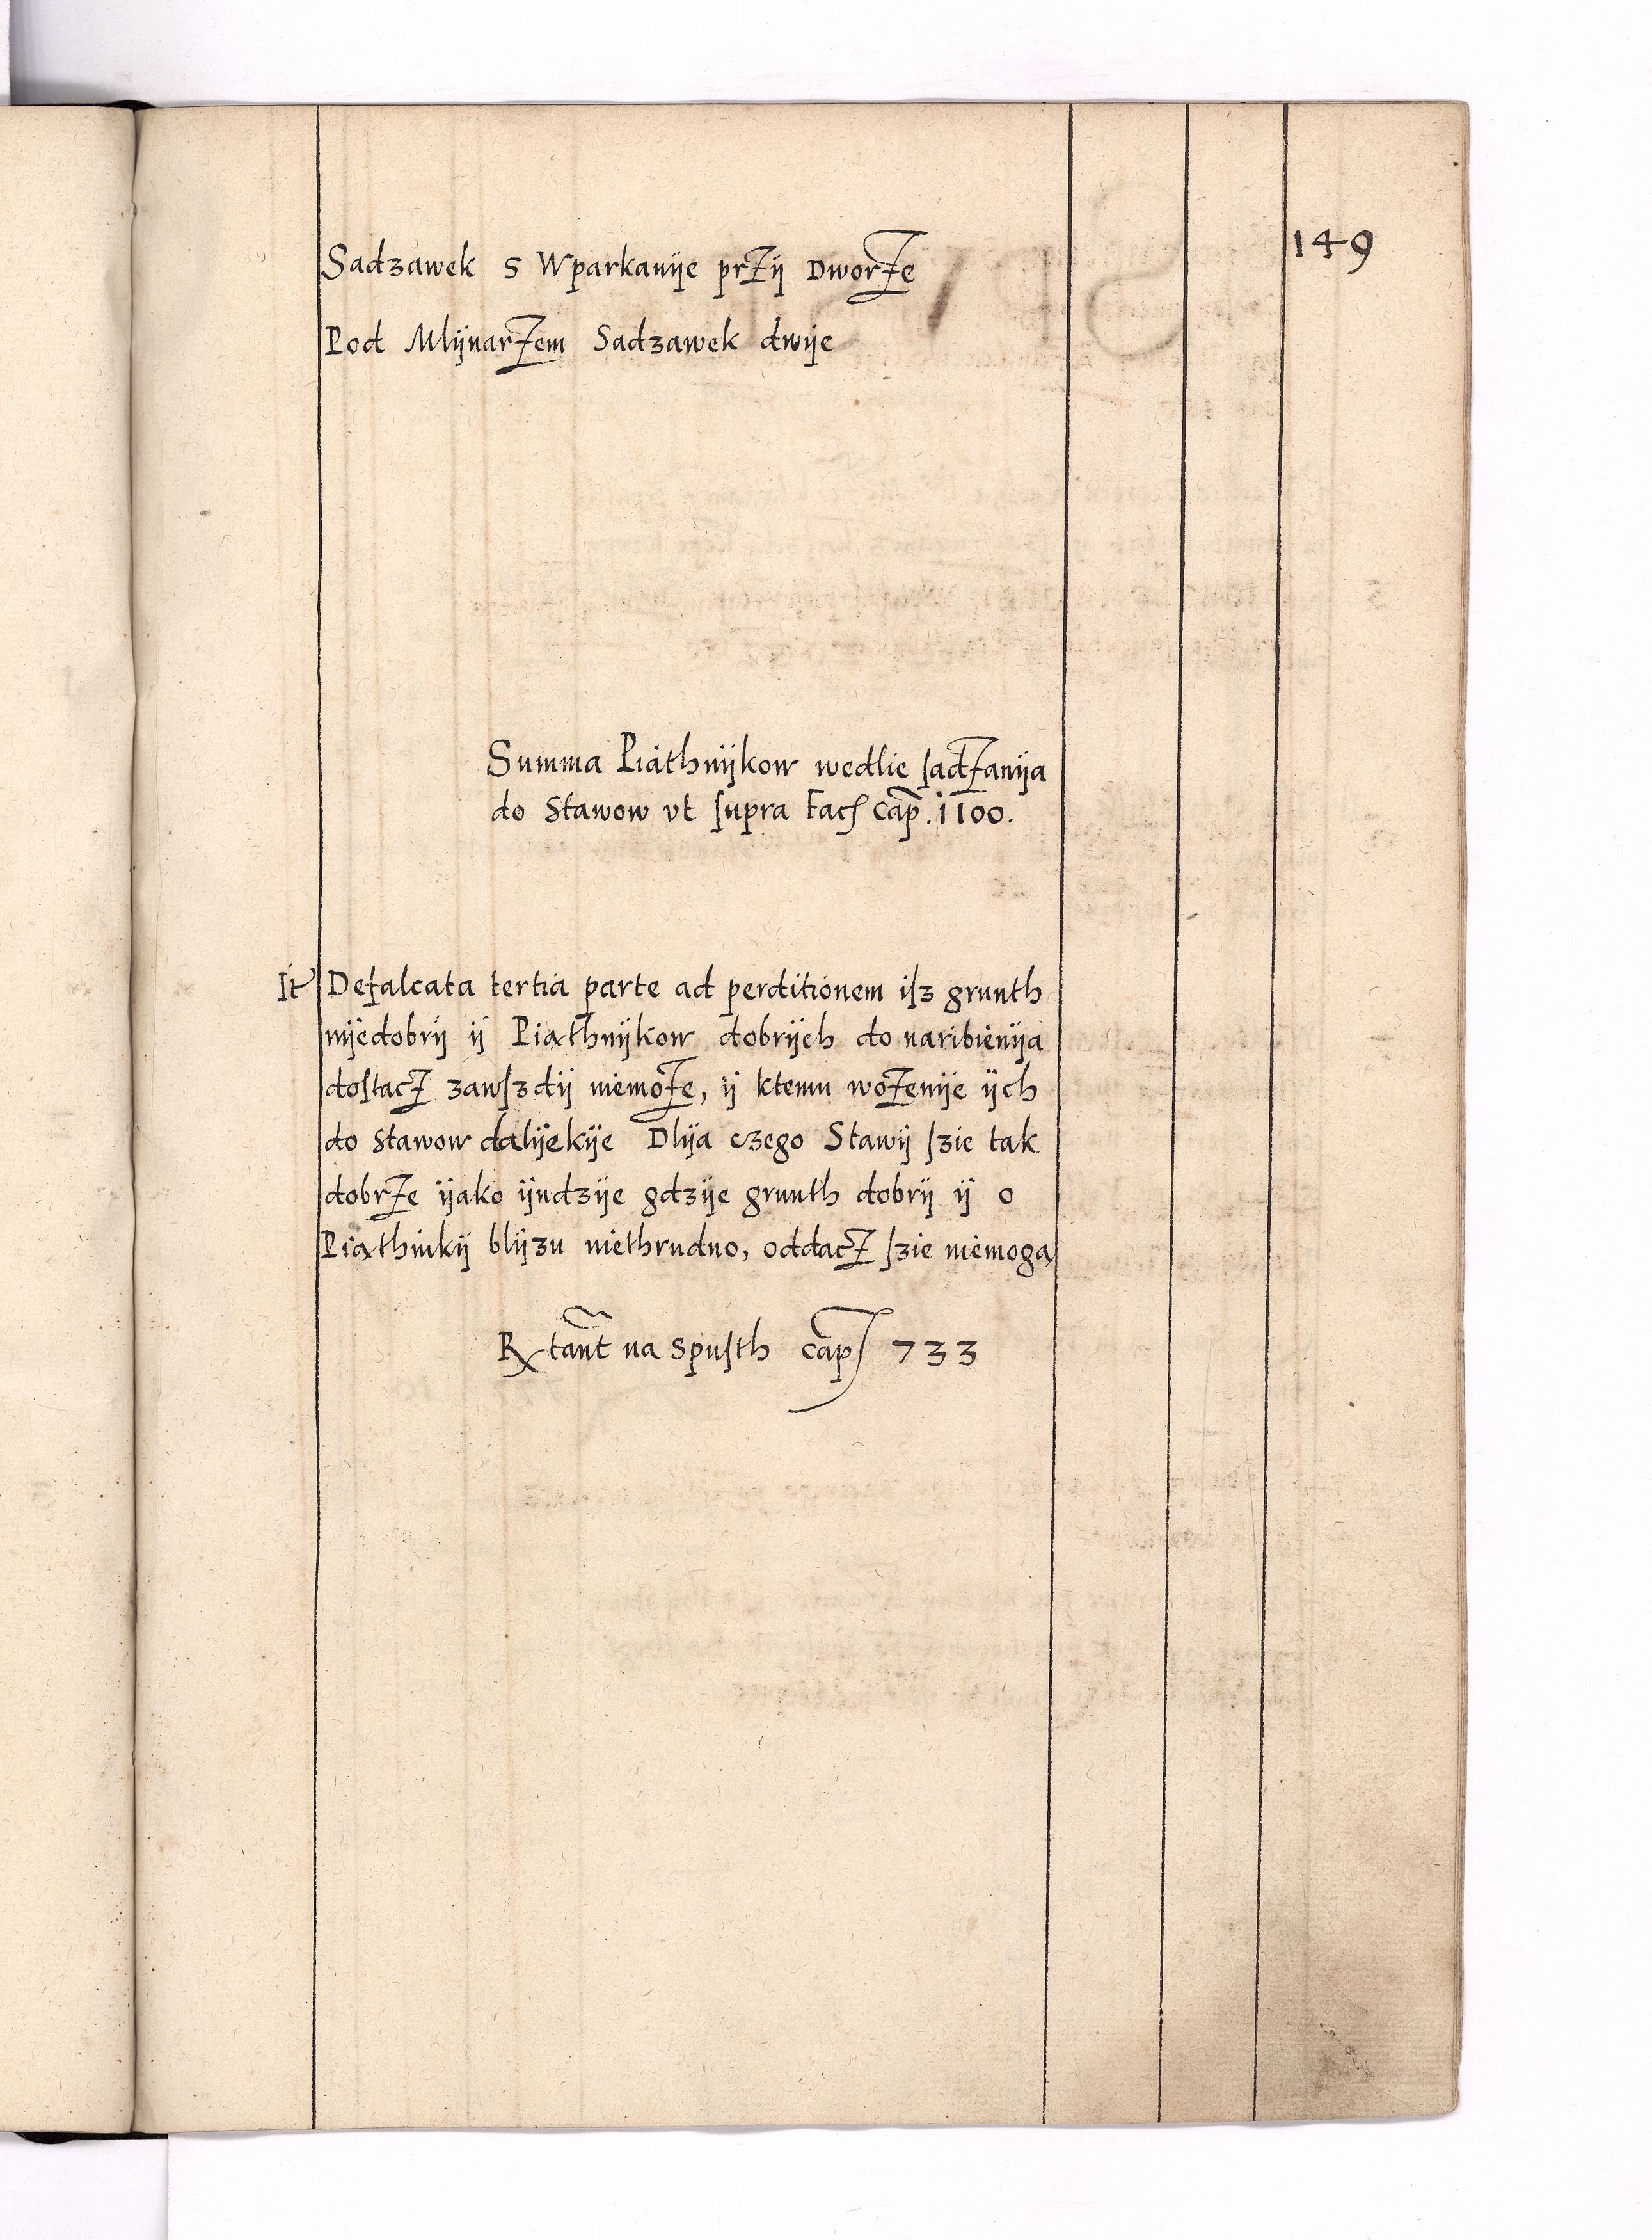 149
Sadzawek 5 Wparkanije przij Dworze
Pod Mlijnarzem Sadzawek dwije
Summa Piathnijkow wedlie ſadzanija
do Stawow vt ſupra facſ cap̃. 1100.
It Defalcata tertia parte ad perditionem iſz grunth
nijedobrij ij Piąthnijkow dobrijch do naribienija
doſtacz zawſzdij niemoze, ij ktemu wozenije ijch
do Stawow dalijekije Dlija czego Stawij ſzie tak
dobrze ijako ijndzije gdzije grunth dobrij ij o
Piąthnikij blijzu niethrudno, oddacz ſzie niemogą
Rx tant̃ na Spuſth capſ 733